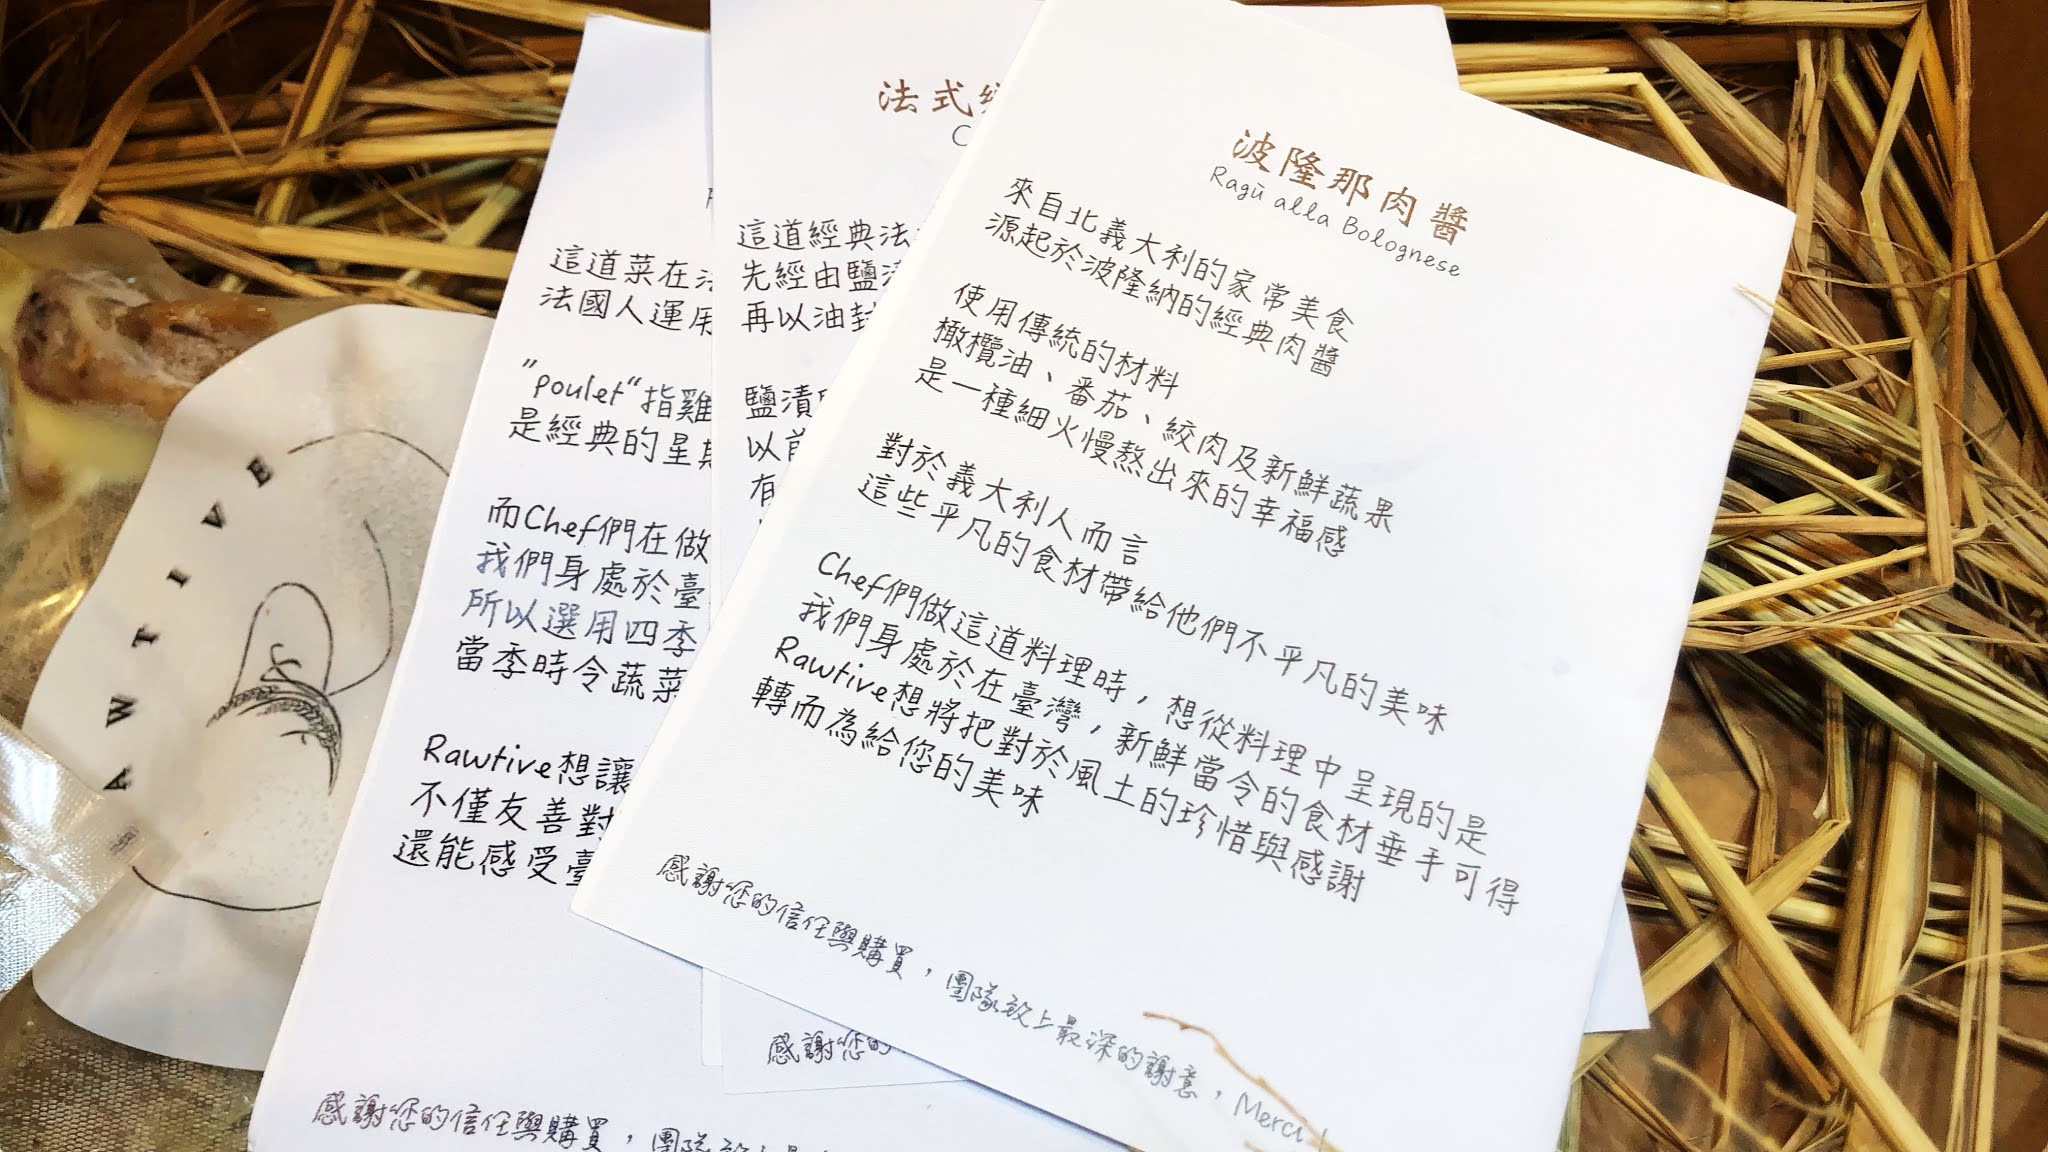 RAWTIVE
這道菜在法
法國人運用
"poulet"指雞
是經典的星期
而Chef們在做
我們身處於臺
所以選用四季
當季時令蔬菜
Rawtive想讓
不僅友善對
還能感受臺
感謝您的信任與購買，團隊致上最
法式
C
這道經典法
先經由鹽漬
再以油封
鹽漬
以首
有
感謝您的
波隆那肉醬
Ragū alla Bolognese
來自北義大利的家常美食
源起於波隆納的經典肉醬
使用傳統的材料
橄欖油、番茄、絞肉及新鮮蔬果
是一種細火慢熬出來的幸福感
對於義大利人而言
這些平凡的食材帶給他們不平凡的美味
Chef們做這道料理時，想從料理中呈現的是
我們身處於在臺灣，新鮮當令的食材垂手可得
Rawtive想將把對於風土的珍惜與感謝
轉而為給您的美味
感謝您的信任與購買，團隊致上最深的謝意，Merci！